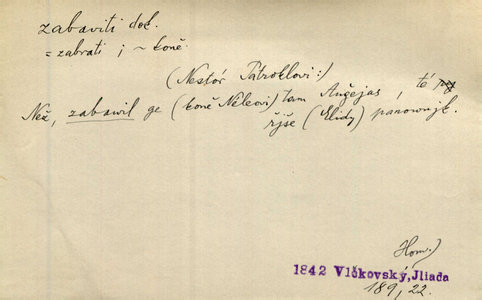 zabaviti dok.
= zabrati ; ~ koně.
(Nestór Patroklovi:)
Než, zabawil ge (koně Nēleovi) tam Aužejas, té
řjše (Elidy) panownjk.
Hom.)
1842 Vlčkovský, Jliada
189, 22.